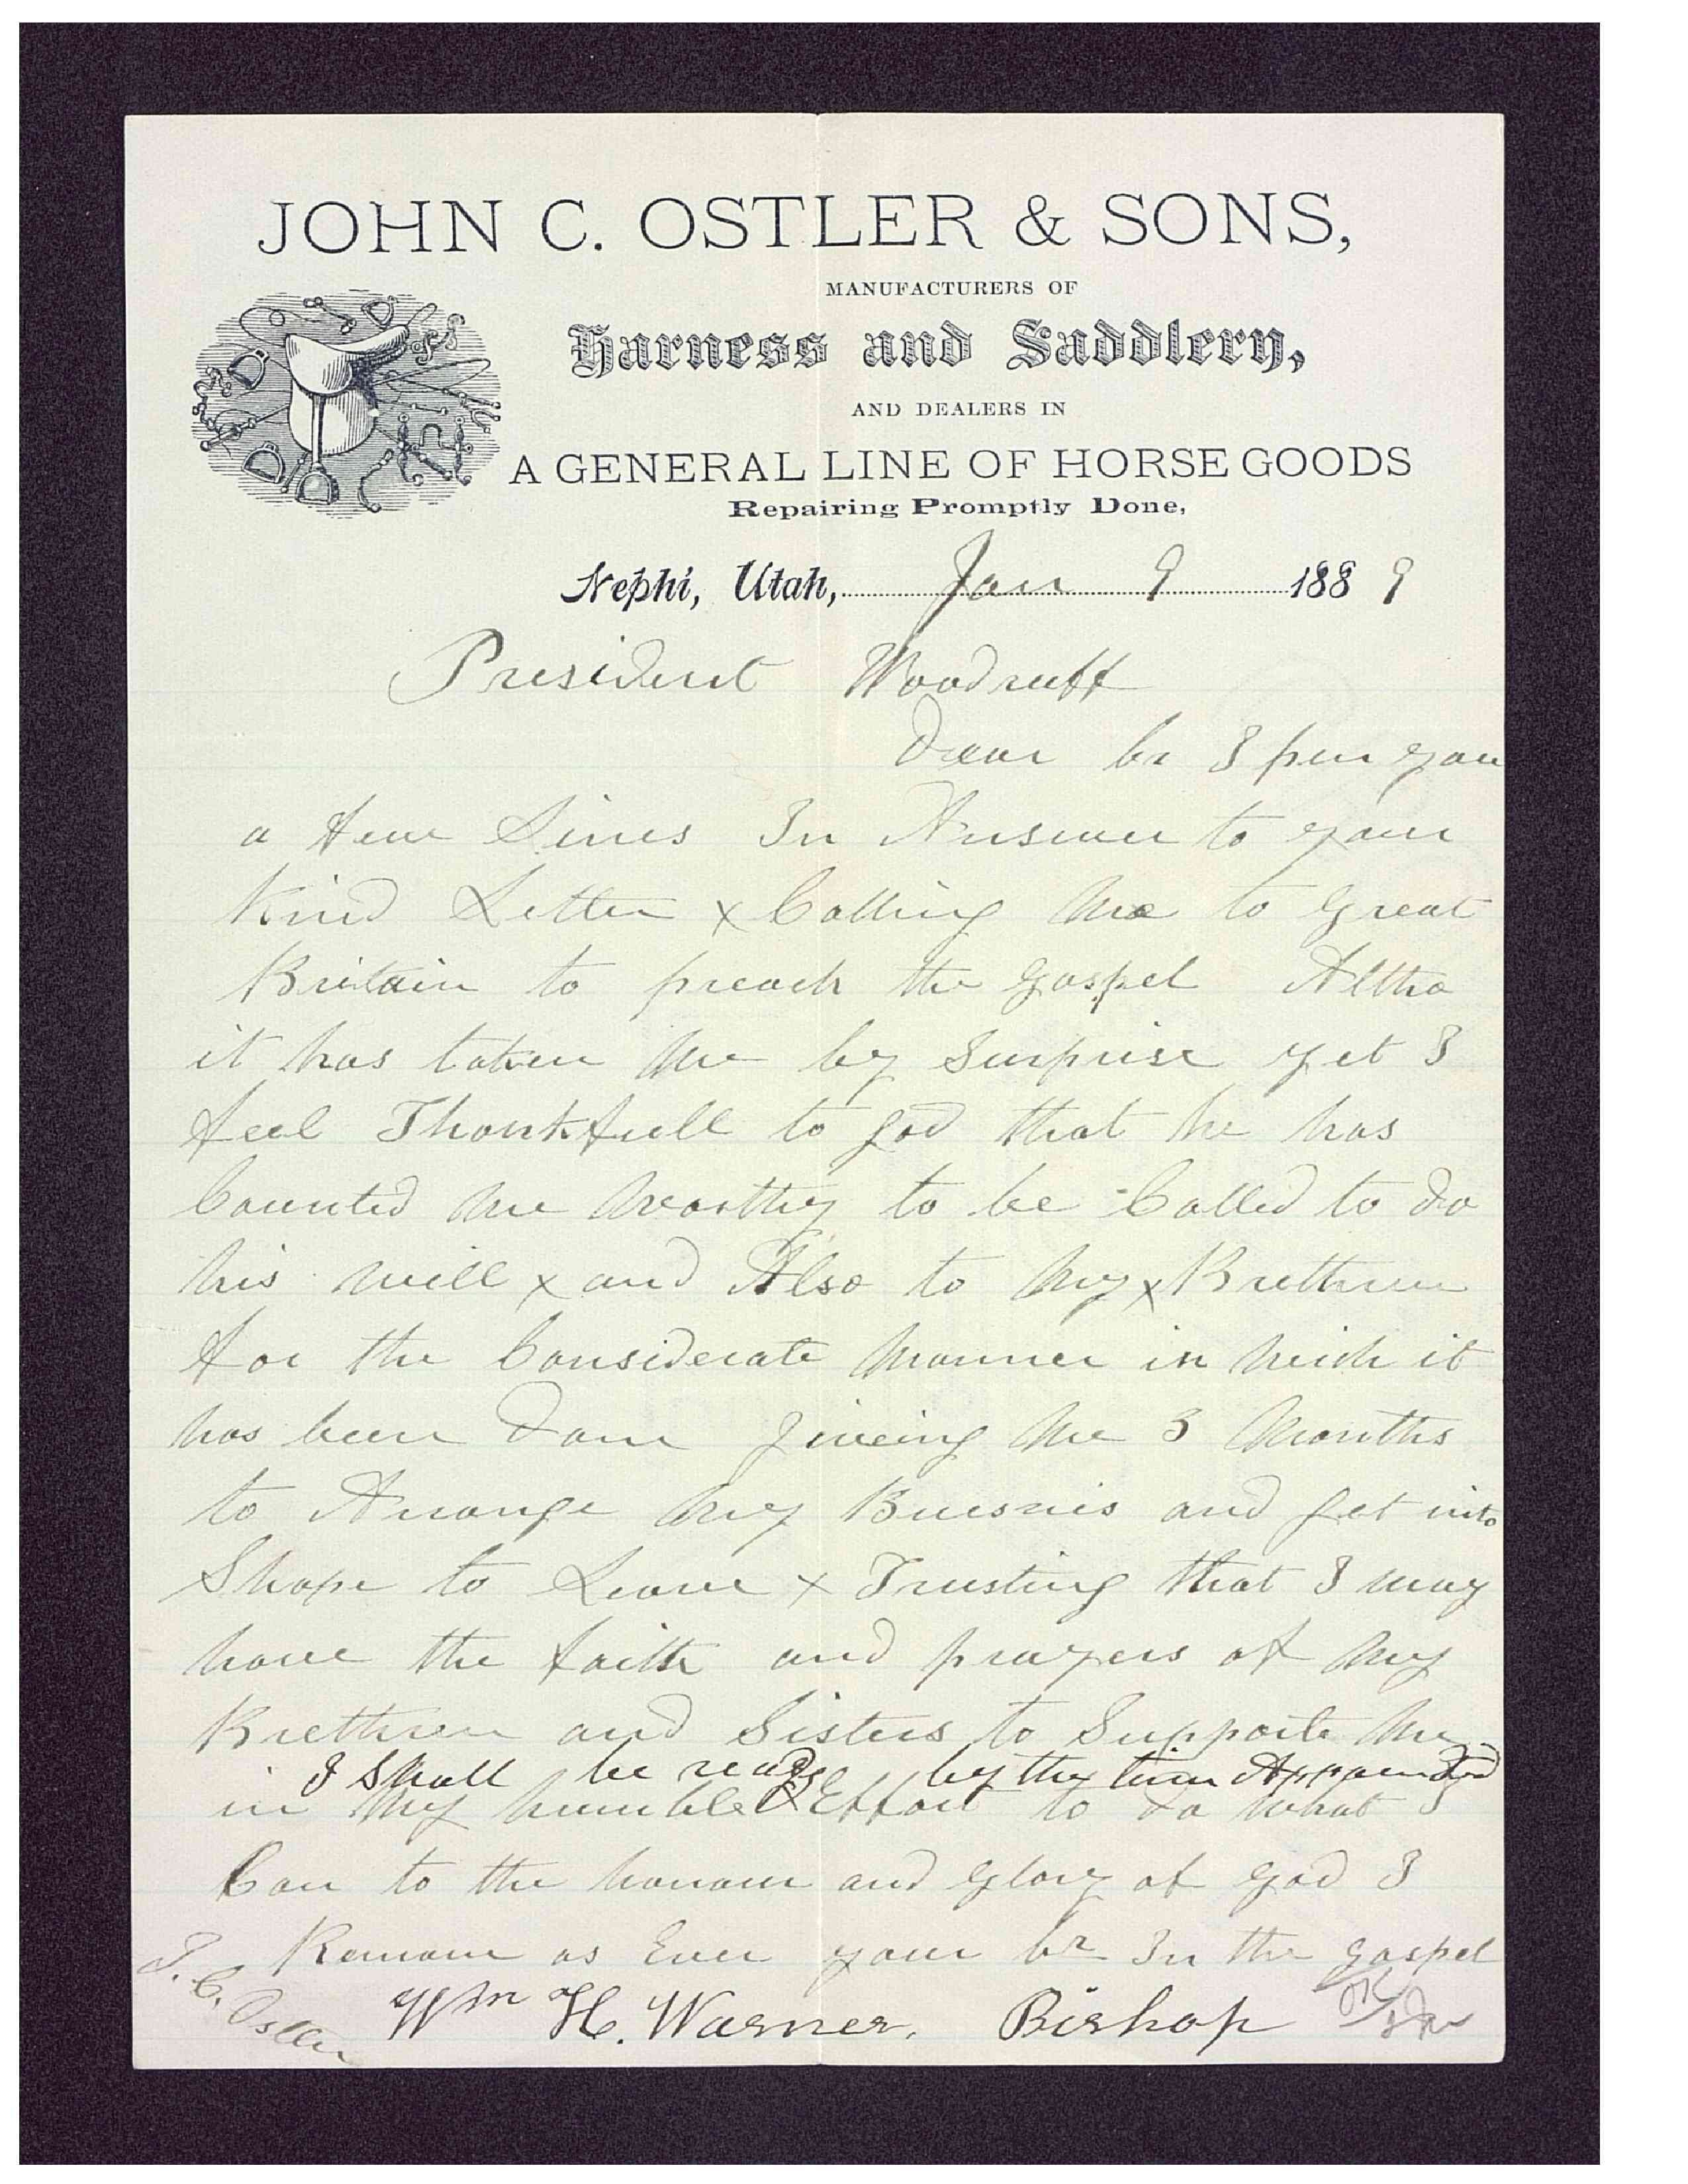 JOHN C. OSTLER & SONS,
MANUFACTURERS OF
Harness and Saddlery,
AND DEALERS IN
A GENERAL LINE OF HORSE GOODS
Repairing Promptly Done,
Nephi, Utah, Jan 9 1889
President Woodruff
Dear br I pen you
a few Lines In Answer to your
Kind Letter x Calling me to Great
Britain to preach the gospel Altho
it has taken me by Surprise yet I
feel Thankfull to god that he has
Counted me worthy to be Called to do
his will x and Also to my x Brethren
for the Considerate manner in wich it
has been don giveing me 3 Months
to Arrange my Buesnis and get into
Shape to Leave x Trusting that I may
have the faith and prayers of my
Brethren and Sisters to Supporte me
I Shall be ready by the time Appointed
in my humble Effort to do what I
Can to the honour and glory of god I
Remain as Ever your br In the gospel
J. C. Ostler
Wm H. Warner, Bishop
OK